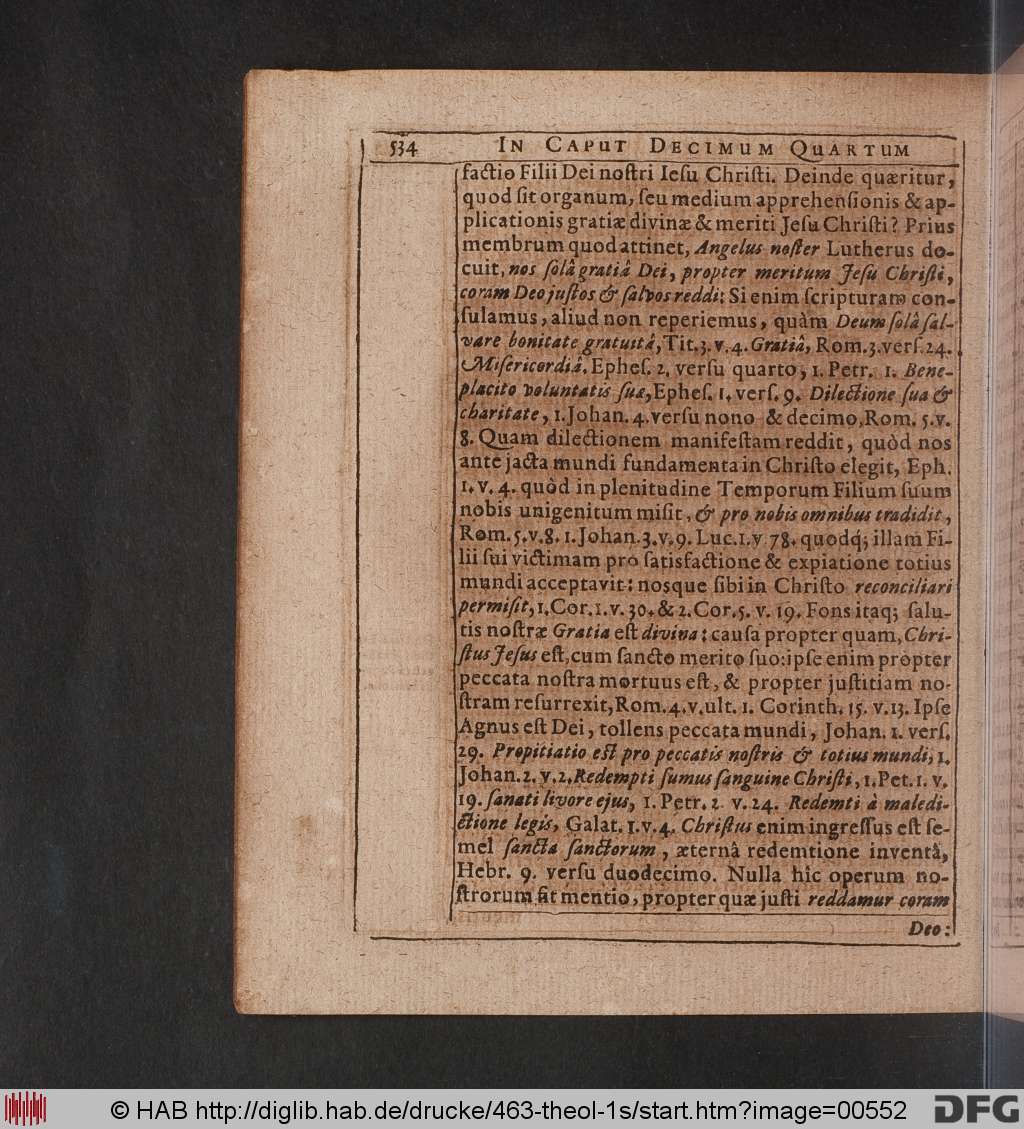 534 IN CAPUT DECIMUM QUARTUM
factio Filii Dei noſtri Ieſu Chriſti. Deinde quæritur,
quod ſit organum, ſeu medium apprehenſionis & ap-
plicationis gratiæ divinæ & meriti Jeſu Chriſti? Prius
membrum quod attinet, Angelus noſter Lutherus do-
cuit, nos ſolâ gratiâ Dei, propter meritum Jeſu Chriſti,
coram Deo juſtos & ſalvos reddi: Si enim ſcripturam con-
ſulamus, aliud non reperiemus, quàm Deum ſolâ ſal-
vare bonitate gratuitâ, Tit. 3. v. 4. Gratiâ, Rom. 3. verſ. 24.
Miſericordiâ. Epheſ. 2. verſu quarto, 1. Petr. 1. Bene-
placito voluntatis ſuæ, Epheſ. 1. verſ. 9. Dilectione ſua &
charitate, 1. Johan. 4. verſu nono & decimo, Rom. 5. v.
8. Quam dilectionem manifeſtam reddit, quòd nos
ante jacta mundi fundamenta in Chriſto elegit, Eph.
1. v. 4. quòd in plenitudine Temporum Filium ſuum
nobis unigenitum miſit, & pro nobis omnibus tradidit,
Rom. 5. v. 8. 1. Johan. 3. v. 9. Luc. 1. v 78. quodq́; illam Fi-
lii ſui victimam pro ſatisfactione & expiatione totius
mundi acceptavit: nosque ſibi in Chriſto reconciliari
permiſit, 1. Cor. 1. v. 30. & 2. Cor. 5. v. 19. Fons itaq; ſalu-
tis noſtræ Gratia eſt divina: cauſa propter quam, Chri-
ſtus Jeſus eſt, cum ſancto merito ſuo: ipſe enim propter
peccata noſtra mortuus eſt, & propter juſtitiam no-
ſtram reſurrexit, Rom. 4. v. ult. 1. Corinth. 15. v. 13. Ipſe
Agnus eſt Dei, tollens peccata mundi, Johan. 1. verſ.
29. Propitiatio eſt pro peccatis noſtris & totius mundi, 1.
Johan. 2. v. 2. Redempti ſumus ſanguine Chriſti, 1. Pet. 1. v.
19. ſanati livore ejus, 1. Petr. 2 v. 24. Redemti à maledi-
ctione legis, Galat. 1. v. 4. Chriſtus enim ingreſſus eſt ſe-
mel ſancta ſanctorum, æternâ redemtione inventâ,
Hebr. 9. verſu duodecimo. Nulla hîc operum no-
ſtrorum fit mentio, propter quæ juſti reddamur coram
Deo:
© HAB http://diglib.hab.de/drucke/463-theol-1s/start.htm?image=00552 DFG